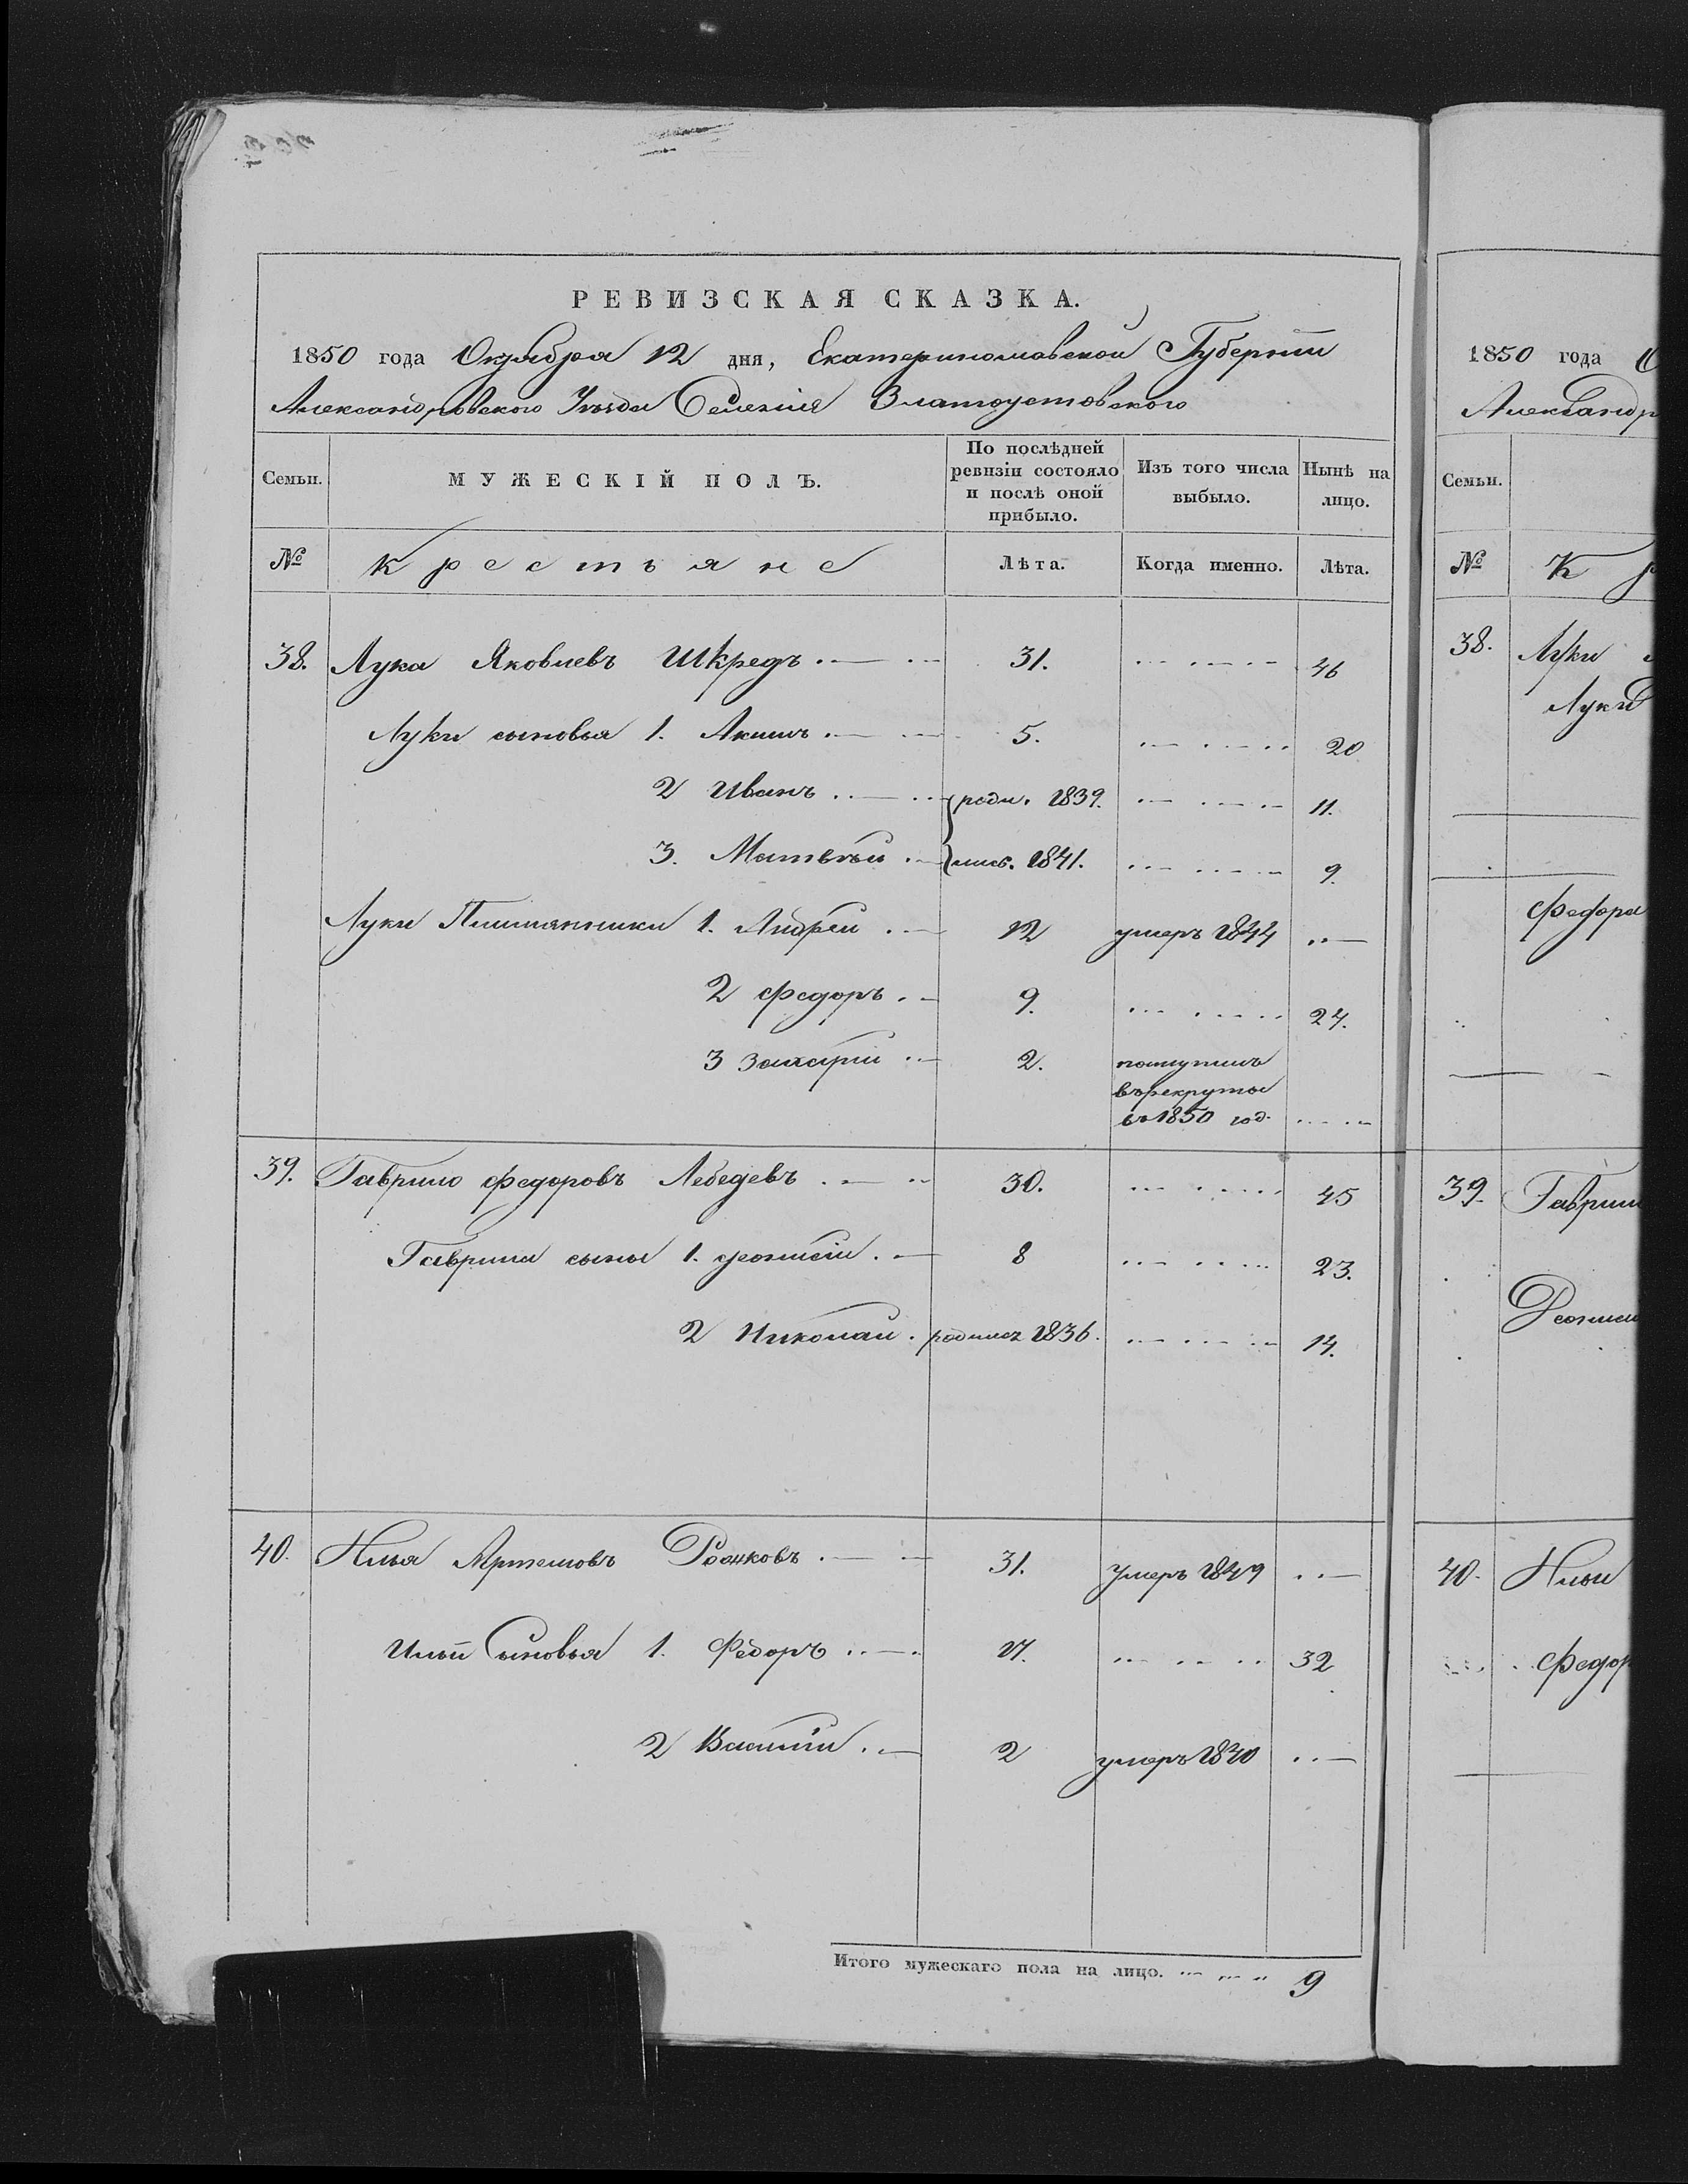 РЕВИЗСКАЯ СКАЗКА.
1850 года Октября 12 дня, Екатеринославской Губерніи
Александровского Уезда Селенія Златоустовского
Семьи. МУЖЕСКІЙ ПОЛЪ. По послѣдней ревизіи состояло и послѣ оной прибыло. Изъ того числа выбыло. Нынѣ на лицо.
№ Крестьяне Лѣта. Когда именно. Лѣта.
38. Лука Яковлевъ Шкредъ 31. 46
Луки сыновья 1. Акимъ 5. 20
2 Иванъ родил. 1839. 11.
3. Матвѣй 1841. 9.
Луки Племянники 1. Андрей 12 умеръ 1844
2 Федоръ 9. 24.
3 Захарій 2. поступилъ
въ рекруты
въ 1850 год.
39. Гаврило Федоровъ Лебедевъ 30. 45
Гаврила сыны 1. 8 23.
2 Николай родился 1836. 14.
40. Илья Артемовъ 31. умеръ 1849
Ильи Сыновья 1. Федоръ 17. 32
2 Василій 2 умеръ 1840
Итого мужескаго пола на лицо. 9
1850 года
Александр
Семьи.
№ К р
38. Луки
Луки
Федора
39. Гаврил
40. Ильи
Федор